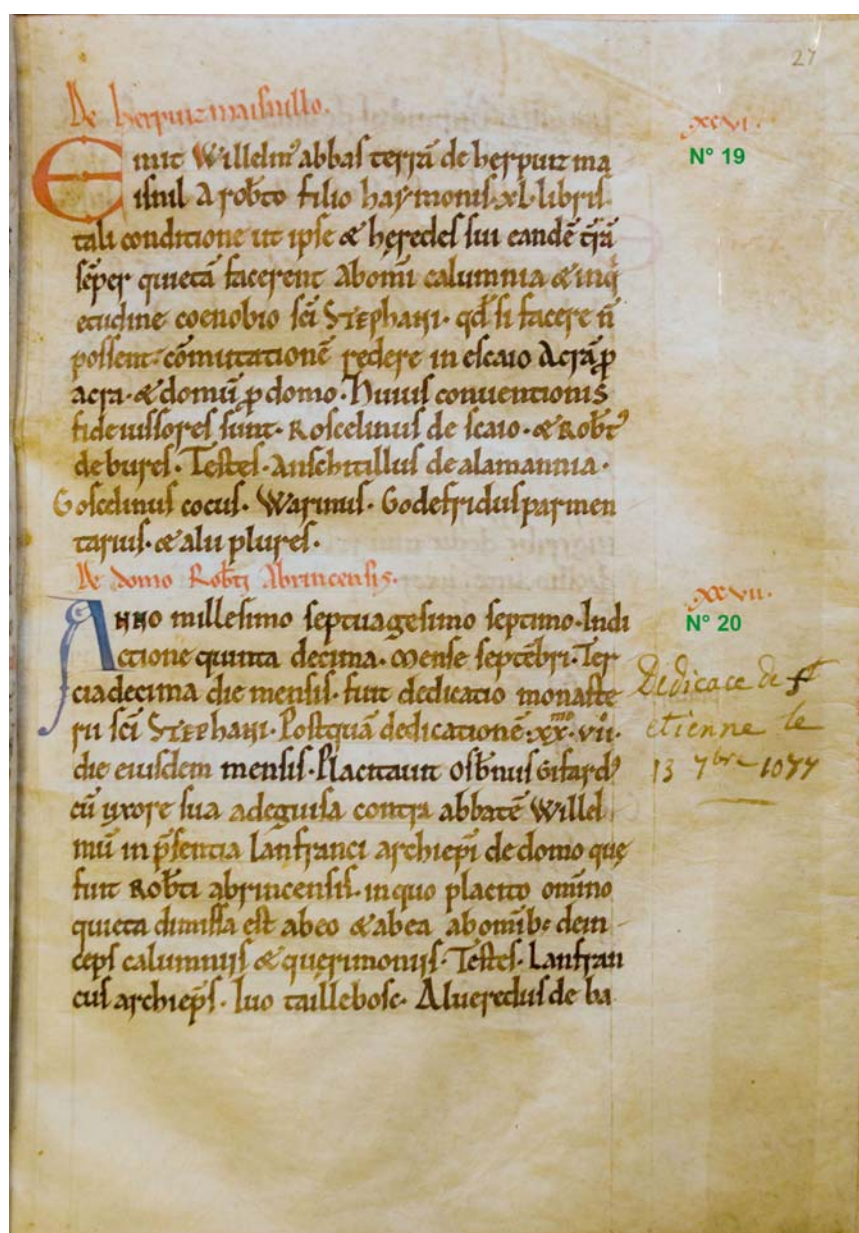 27
De herpuiz maisnillo.
xxvi.
N° 19
Emit Willelm' abbas terrā de herpuiz ma
isnil A rob̄to filio haymonis·xl·libris
tali conditione ut ipse & hęredes sui eandē t̄rā
sēper quietā facerent Abomī calumnia & inq
etudine coenobio sc̄i Stephani· qd̄ si facere n̄
possent· cōmutationē redere in escaio Acrā p̄
acra· & domū p̄ domo· Huius conuentionis
fideiussores sunt· Roscelinus de scaio· & Rob̄t'
de bures· Testes· Anschitillus de alamannia·
Goscelinus cocus· Warinus· Godefridus parmen
tarius· & alii plures·
De domo Rob̄ti Abrincensis·
xxvii.
N° 20
Anno millesimo septuagesimo septimo· Indi
ctione quinta decima· Mense septēbri· Ter
cia decima die mensis· fuit dedicatio monaste
rii sc̄i Stephani· Postquā dedicationē·xx·vii·
die eiusdem mensis· Placitauit Osb̄nus Gifard'
cū uxore sua adeguisa contra abbatē Willel
mū in p̄sentia lanfranci archiep̄i de domo quę
fuit Rob̄ti abrincensis· in quo placito omīno
quieta dimissa est abeo & abea abomīb; dein
ceps calumniis & querimoniis· Testes· Lanfran
cus archiep̄s· Iuo taillebosc· Alueredus de ba
Dedicace de st
etienne le
13 7bre 1077